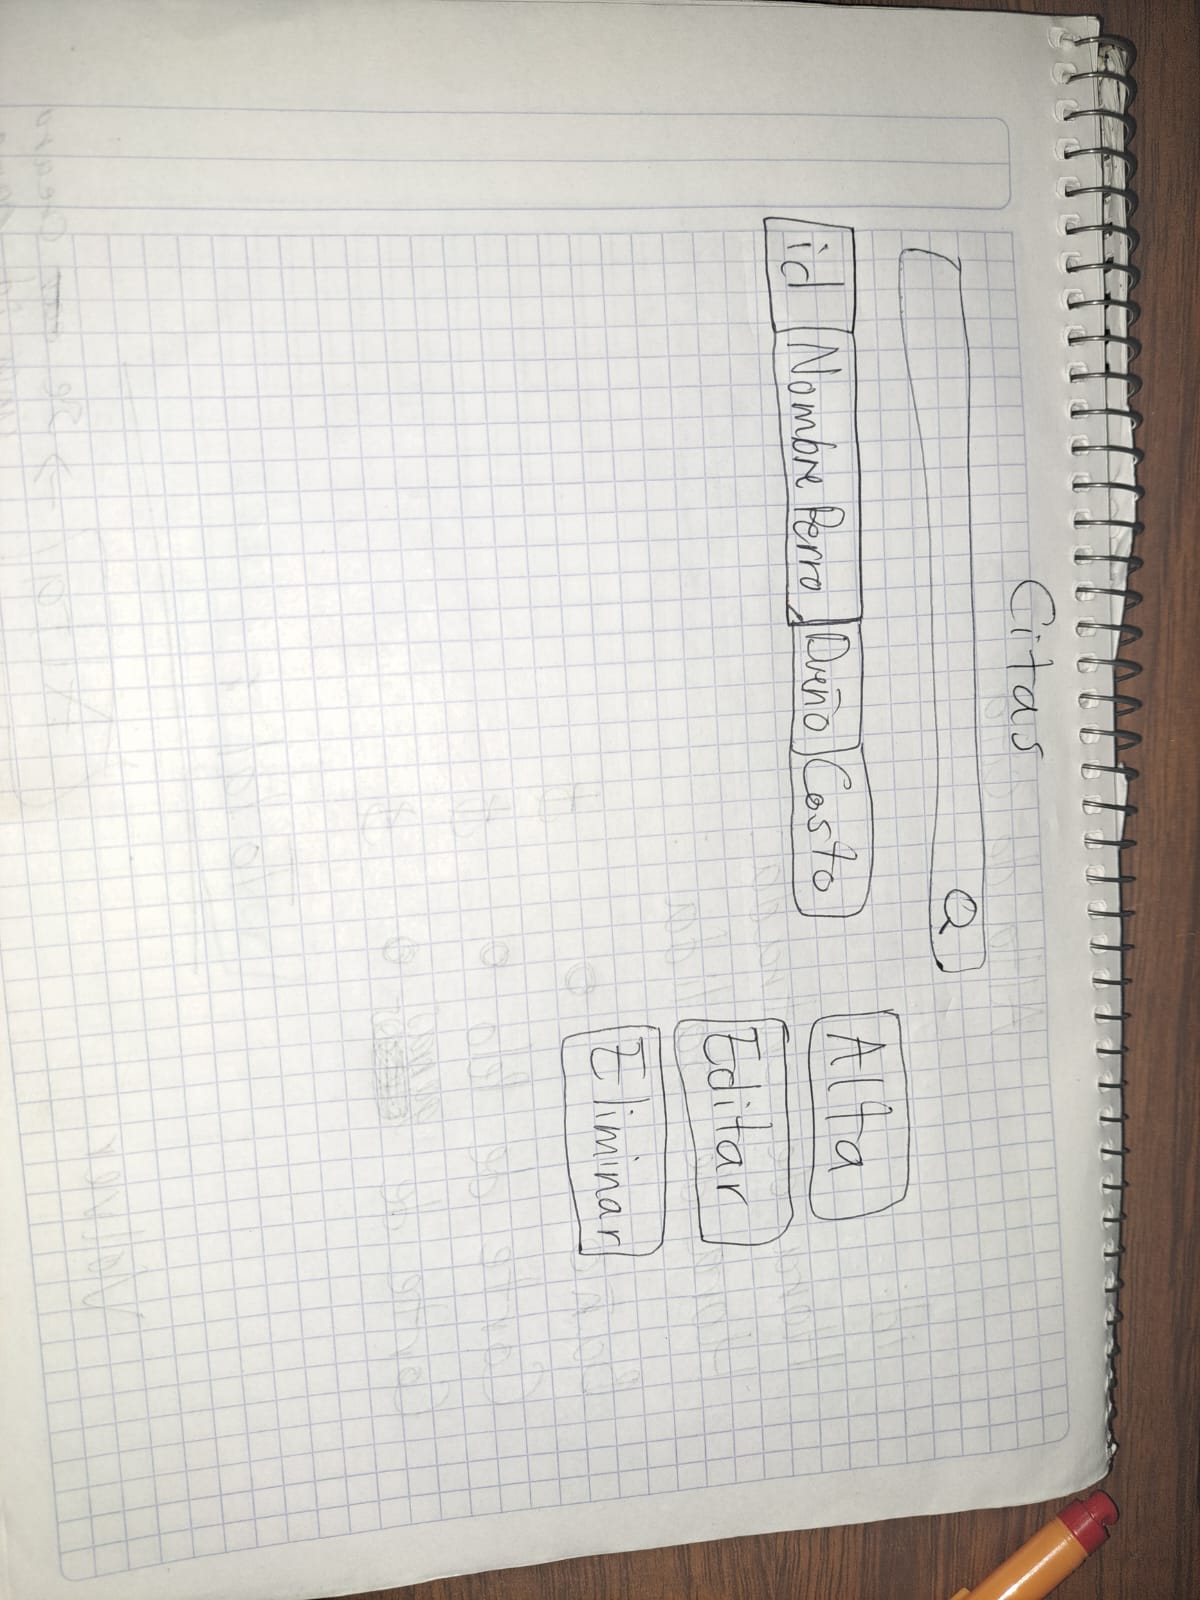 Citas
id Nombre Perro Dueño Costo
Alta
Editar
Eliminar